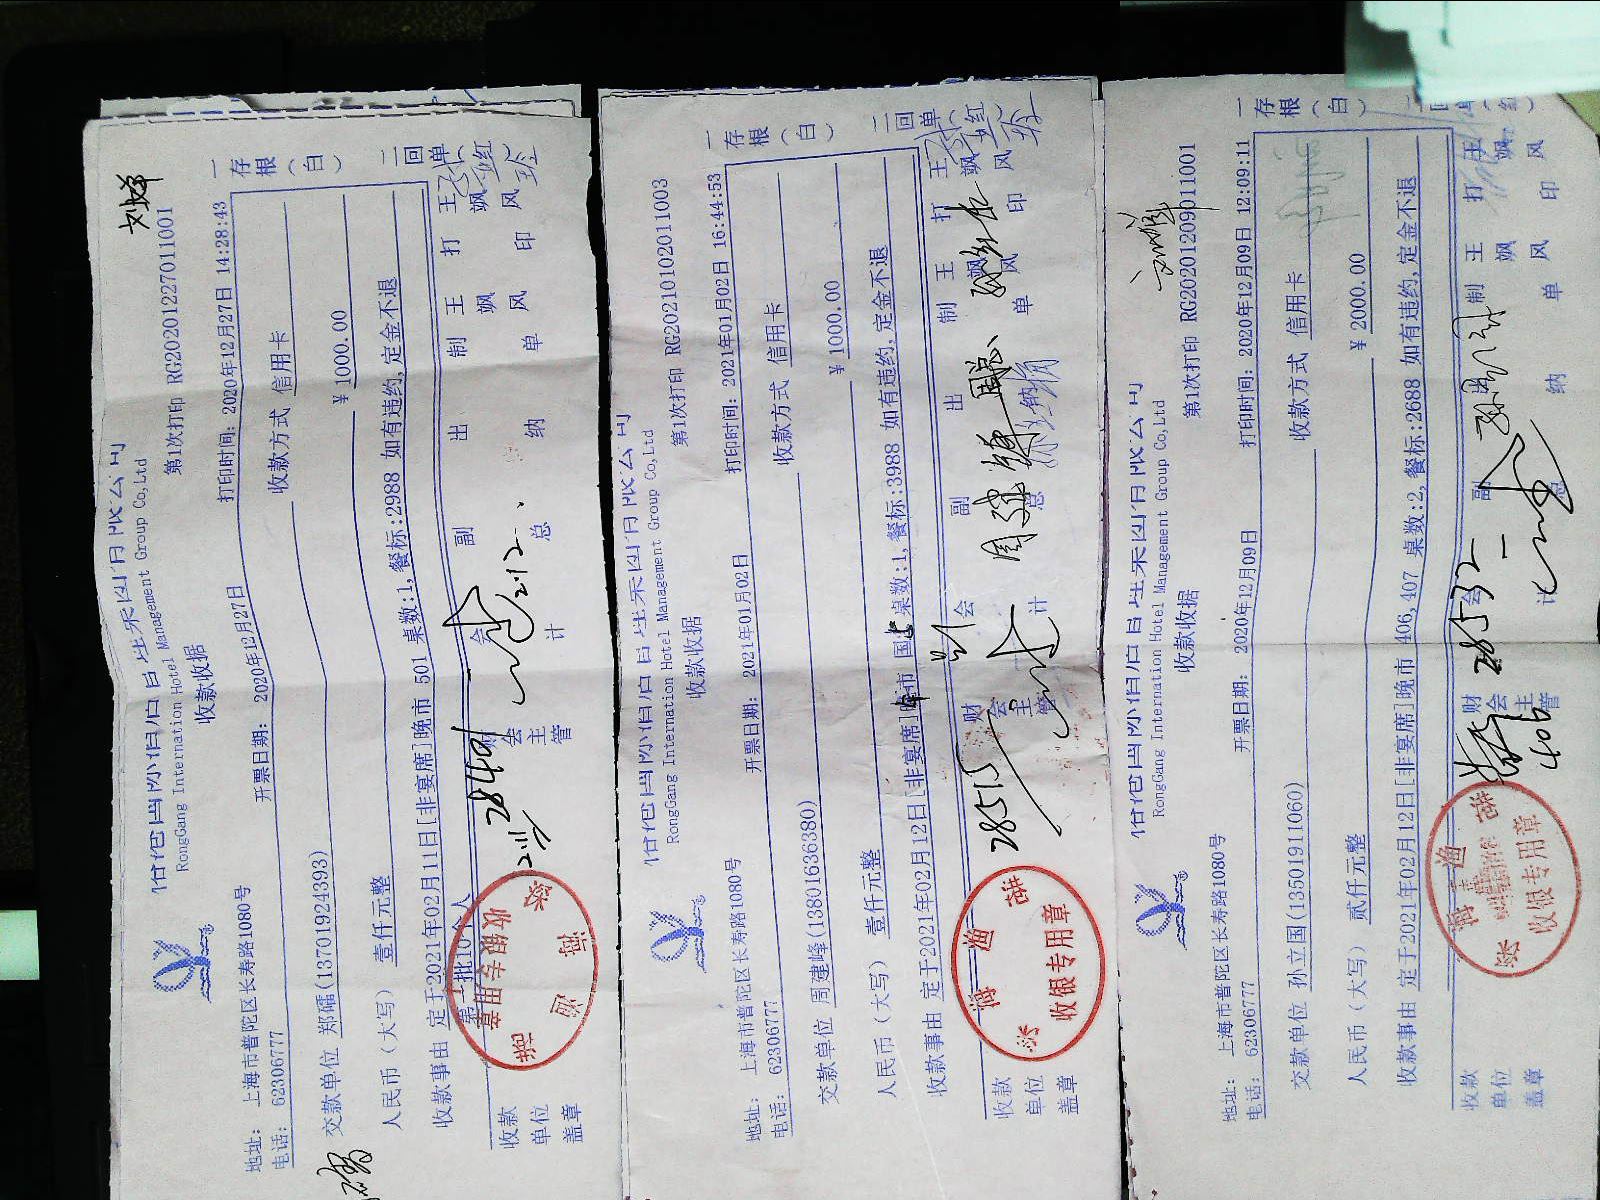 RongGang Internation Hotel Management Group Co,Ltd
收款收据
第1次打印 RG20201227011001
地址: 上海市普陀区长寿路1080号
电话: 62306777
开票日期: 2020年12月27日
打印时间: 2020年12月27日 14:28:43
交款单位 郑礌(13701924393)
收款方式 信用卡
人民币（大写） 壹仟元整
¥ 1000.00
收款事由 定于2021年02月11日[非宴席]晚市 501 桌数:1,餐标:2988 如有违约,定金不退
第一批10个人
收款单位盖章
财会主管
会计
副总
出纳
制单
王飒风
打印
王飒风
一存根（白）
二回单
28401
收银专用章
RongGang Internation Hotel Management Group Co,Ltd
收款收据
第1次打印 RG20210102011003
地址: 上海市普陀区长寿路1080号
电话: 62306777
开票日期: 2021年01月02日
打印时间: 2021年01月02日 16:44:53
交款单位 周建峰(13801636380)
收款方式 信用卡
人民币（大写） 壹仟元整
¥ 1000.00
收款事由 定于2021年02月12日[非宴席] 市 国 桌数:1,餐标:3988 如有违约,定金不退
收款单位盖章
财会主管
会计
副总
出
制单
王飒风
打印
王飒风
一存根（白）
二回单
28515
收银专用章
RongGang Internation Hotel Management Group Co,Ltd
收款收据
第1次打印 RG20201209011001
地址: 上海市普陀区长寿路1080号
电话: 62306777
开票日期: 2020年12月09日
打印时间: 2020年12月09日 12:09:11
交款单位 孙立国(13501911060)
收款方式 信用卡
人民币（大写） 贰仟元整
¥ 2000.00
收款事由 定于2021年02月12日[非宴席]晚市 406,407 桌数:2,餐标:2688 如有违约,定金不退
收款单位盖章
财会主管
会计
副总
纳
制单
王飒风
打印
王飒风
一存根（白）
28532
406
收银专用章